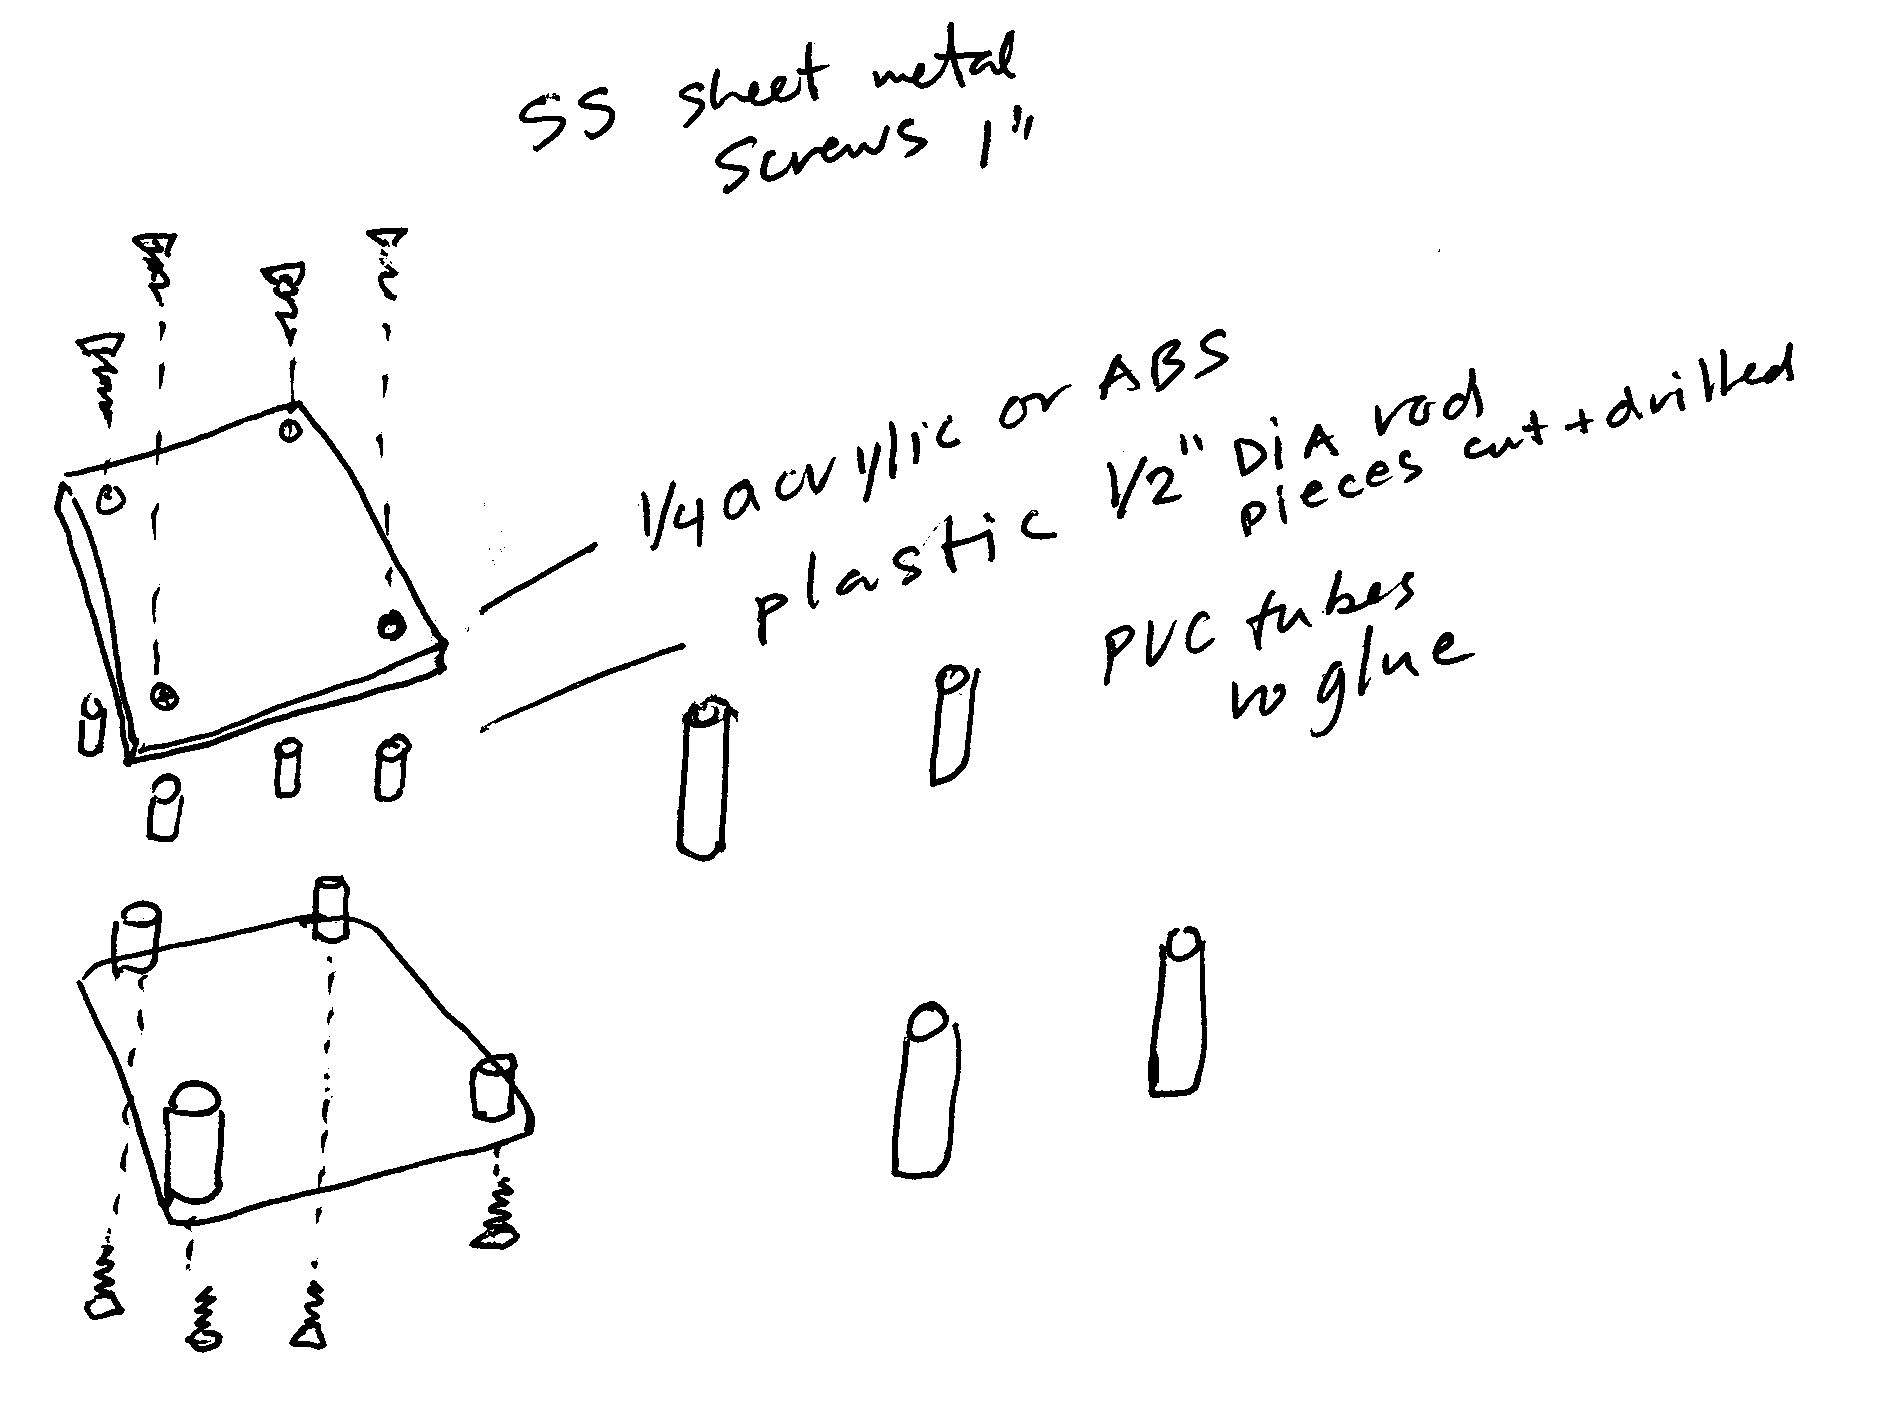 SS sheet metal
screws 1"
1/4 acrylic or ABS
plastic 1/2" DiA rod
pieces cut + drilled
PVC tubes
no glue